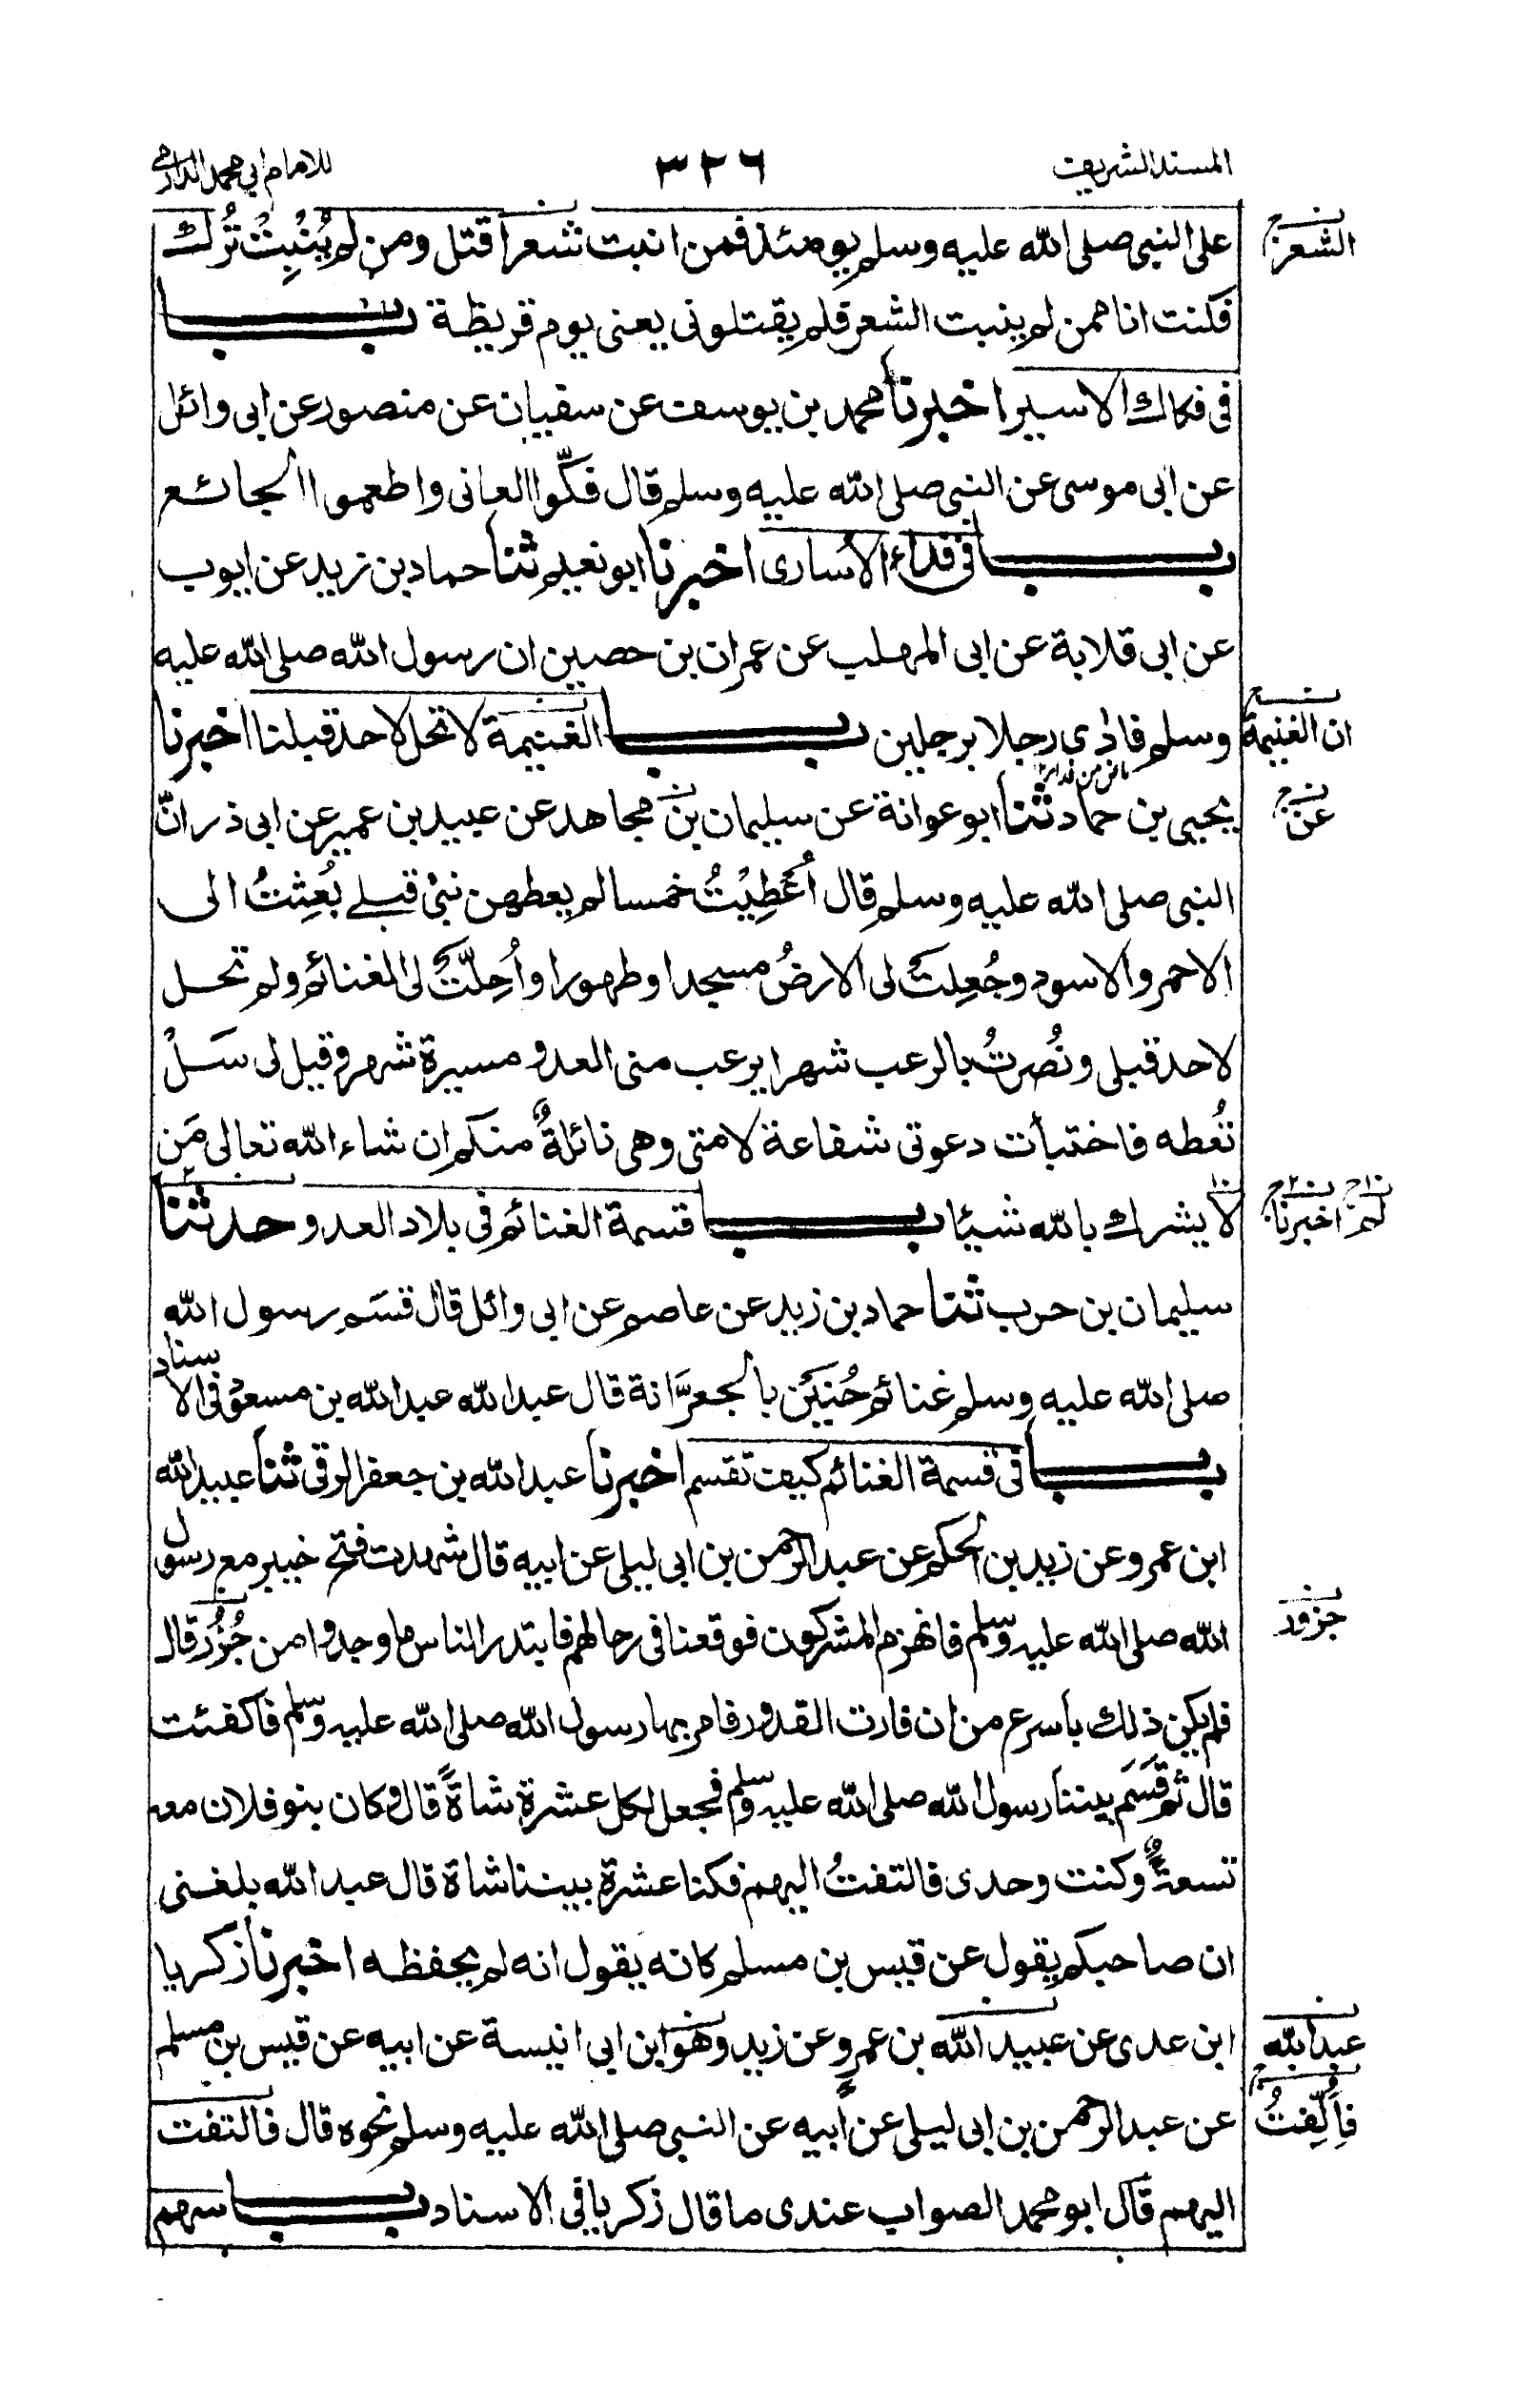 المسند الشريف ٣٢٦ للامام ابي محمد الدارمي
على النبي صلى الله عليه وسلم يومئذ فمن انبت شعرا قتل ومن لم يُنْبِتْ تُرك
الشعر
فكنت انا ممن لم ينبت الشعر فلم يقتلونى يعنى يوم قريظة باب
فى فكاك الاسير اخبرنا محمد بن يوسف عن سفيان عن منصور عن ابى وائل
عن ابى موسى عن النبى صلى الله عليه وسلم قال فكّوا العانى واطعموا الجائع
باب فى فداء الأسارى اخبرنا ابو نعيم ثنا حماد بن زيد عن ايوب
عن ابى قلابة عن ابى المهلب عن عمران بن حصين ان رسول الله صلى الله عليه
وسلم فاذى رجلا برجلين باب الغنيمة لا تحل لاحد قبلنا اخبرنا
ان الغنيمة
يحيى بن حماد ثنا ابو عوانة عن سليمان بن مجاهد عن عبيد بن عمير عن ابى ذر انّ
عن
النبى صلى الله عليه وسلم قال أُعْطِيْتُ خمسا لم يعطهن نبىّ قبلے بُعِثتُ الى
الاحمر والاسود وجُعِلت لى الارضُ مسجدا وطهورا وأُحِلّت لى الغنائم ولم تحل
لاحد قبلى ونُصرتُ بالرعب شهرا يرعب منى العدو مسيرة شهر وقيل لى سَلْ
تُعطه فاختبأت دعوتى شفاعة لامتى وهى نائلةٌ منكم ان شاء الله تعالى مَن
لا يشرك بالله شيئا باب قسمة الغنائم فى بلاد العدو حدثنا
لم اخبرنا
سليمان بن حرب ثنا حماد بن زيد عن عاصم عن ابى وائل قال قسَم رسول الله
صلى الله عليه وسلم غنائم حُنَيْن بالجعرّانة قال عبد الله عبد الله بن مسعود فى الاسناد
باب فى قسمة الغنائم كيف تقسم اخبرنا عبد الله بن جعفر الرقى ثنا عبيد الله
ابن عمرو عن زيد بن الحكم عن عبد الرحمن بن ابى ليلى عن ابيه قال شهدت فتح خيبر مع رسول
الله صلى الله عليه وسلم فانهزم المشركون فوقعنا فى رحالهم فابتدر الناس ما وجدوا من جُزُر قال
جزور
فلم يكن ذلك بأسرع من ان فارت القدور فامر بها رسول الله صلى الله عليه وسلم فاكفئت
قال ثم قَسَم بيننا رسول الله صلى الله عليه وسلم فجعل لكل عشرة شاةً قال وكان بنو فلان معه
تسعةٌ وكنت وحدى فالتفتُ اليهم فكنا عشرة بيننا شاة قال عبد الله بلغنى
ان صاحبكم يقول عن قيس بن مسلم كانه يقول انه لم يحفظه اخبرنا زكريا
ابن عدى عن عبيد الله بن عمرو عن زيد وهو ابن ابى انيسة عن ابيه عن قيس بن مسلم
عبد الله
عن عبد الرحمن بن ابى ليلى عن ابيه عن النبى صلى الله عليه وسلم نحوه قال فالتفت
فأُلِّفتُ
اليهم قال ابو محمد الصواب عندى ما قال زكريا فى الاسناد باب سهم